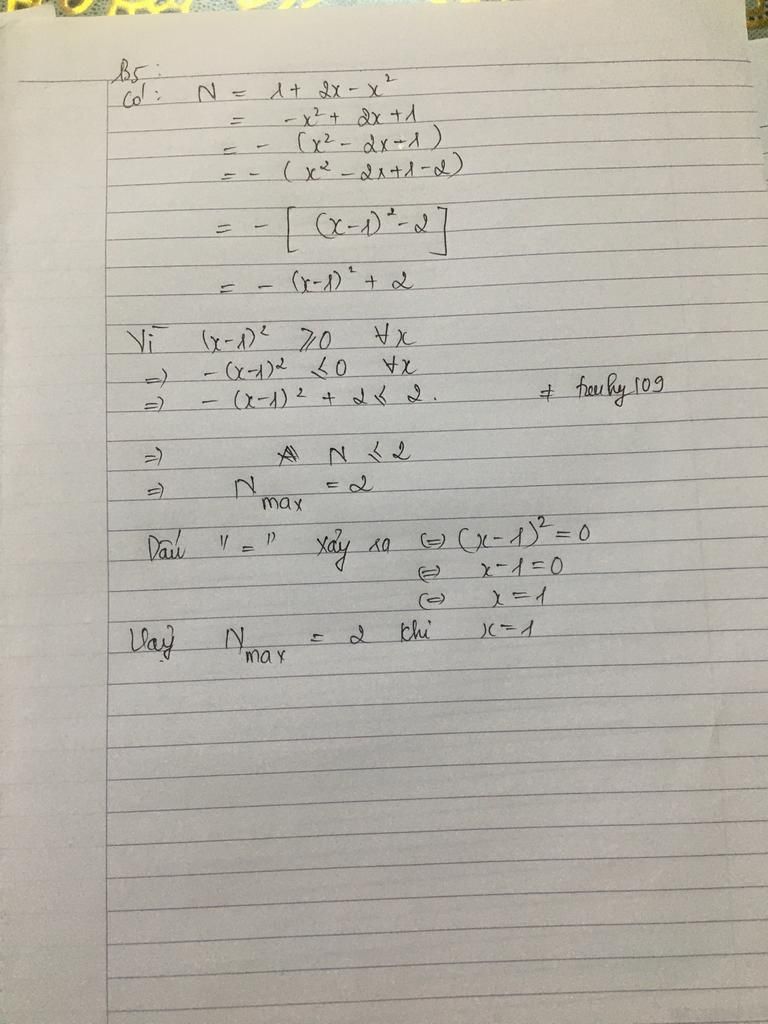 B5:
Có: N = 1 + 2x - x²
= -x² + 2x + 1
= - (x² - 2x - 1)
= - (x² - 2x + 1 - 2)
= - [ (x-1)² - 2 ]
= - (x-1)² + 2
Vì (x-1)² ⩾ 0 ∀x
=> -(x-1)² ⩽ 0 ∀x
=> - (x-1)² + 2 ⩽ 2.
=> N ⩽ 2
=> N max = 2
Dấu "=" xảy ra (=) (x-1)² = 0
(=) x - 1 = 0
(=) x = 1
Vậy N max = 2 khi x = 1